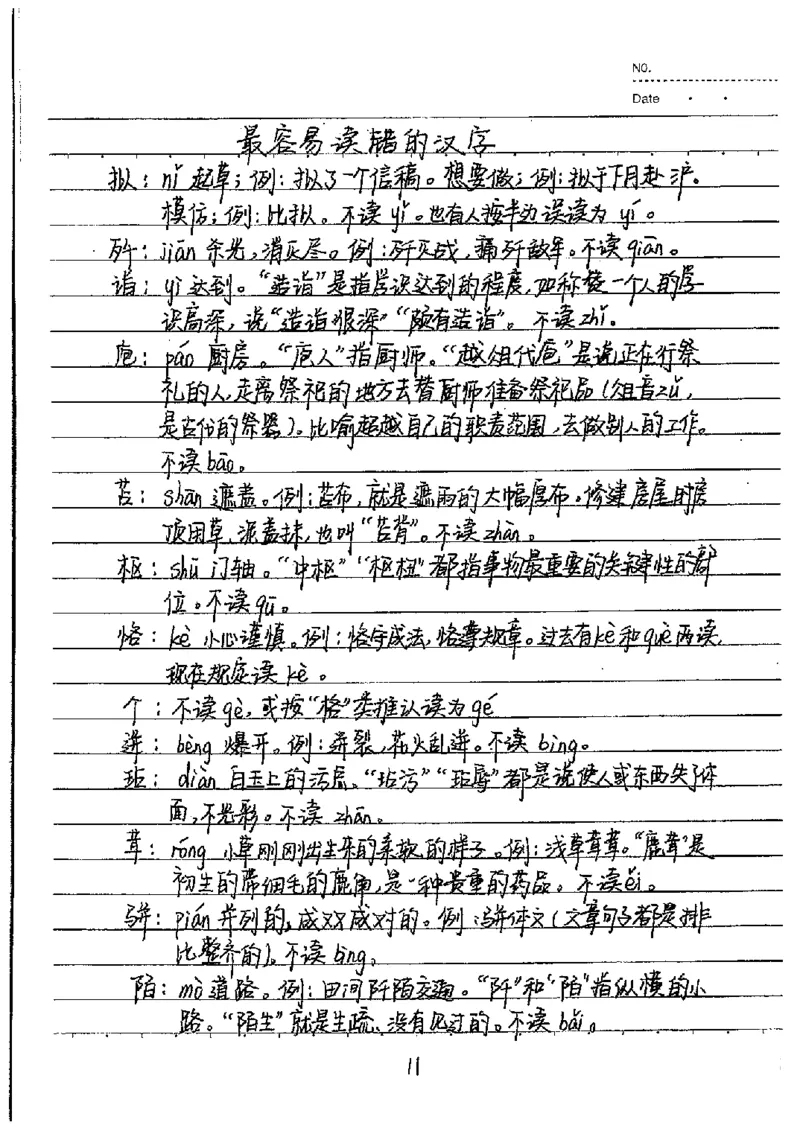 NO.
Date
最容易读错的汉字
拟：nǐ 起草；例：拟了一个信稿。想要做；例：拟于下月赴沪。
模仿；例：比拟。不读 yǐ。也有人按半边误读为 yí。
歼：jiān 杀光，消灭尽。例：歼灭战，痛歼敌军。不读 qiān。
诣：yì 达到。“造诣”是指学识达到的程度，如称赞一个人的学
识高深，说“造诣很深”“颇有造诣”。不读 zhǐ.
庖：páo 厨房。“庖人”指厨师。“越俎代庖”是说正在行祭
礼的人，走离祭祀的地方去替厨师准备祭祀品（俎音zǔ，
是古代的祭器）。比喻超越自己的职责范围，去做别人的工作。
不读 bāo。
苫：shān 遮盖。例：苫布，就是遮雨的大幅厚布。修建房屋时房
顶用草，泥盖抹，也叫“苫背”。不读 zhān。
枢：shū 门轴。“中枢”“枢纽”都指事物最重要的关键性的部
位。不读 qū。
恪：kè 小心谨慎。例：恪守成法，恪尊规章。过去有kè和què两读，
现在规定读 kè。
个：不读 gè，或按“格”类推认读为 gé
迸：bèng 爆开。例：迸裂，花火乱迸。不读 bìng。
玷：diàn 白玉上的污点。“玷污”“玷辱”都是说使人或东西失了体
面，不光彩。不读 zhān。
茸：róng 小草刚刚出生来的柔软的样子。例：浅草茸茸。“鹿茸”是
初生的带细毛的鹿角，是一种贵重的药品。不读ěi。
骈：pián 并列的，成双成对的。例：骈体文（文章句子都是排
比整齐的）。不读 bìng。
陌：mò 道路。例：田河阡陌交通。“阡”和“陌”指纵横的小
路。“陌生”就是生疏、没有见过的。不读 bǎi。
11